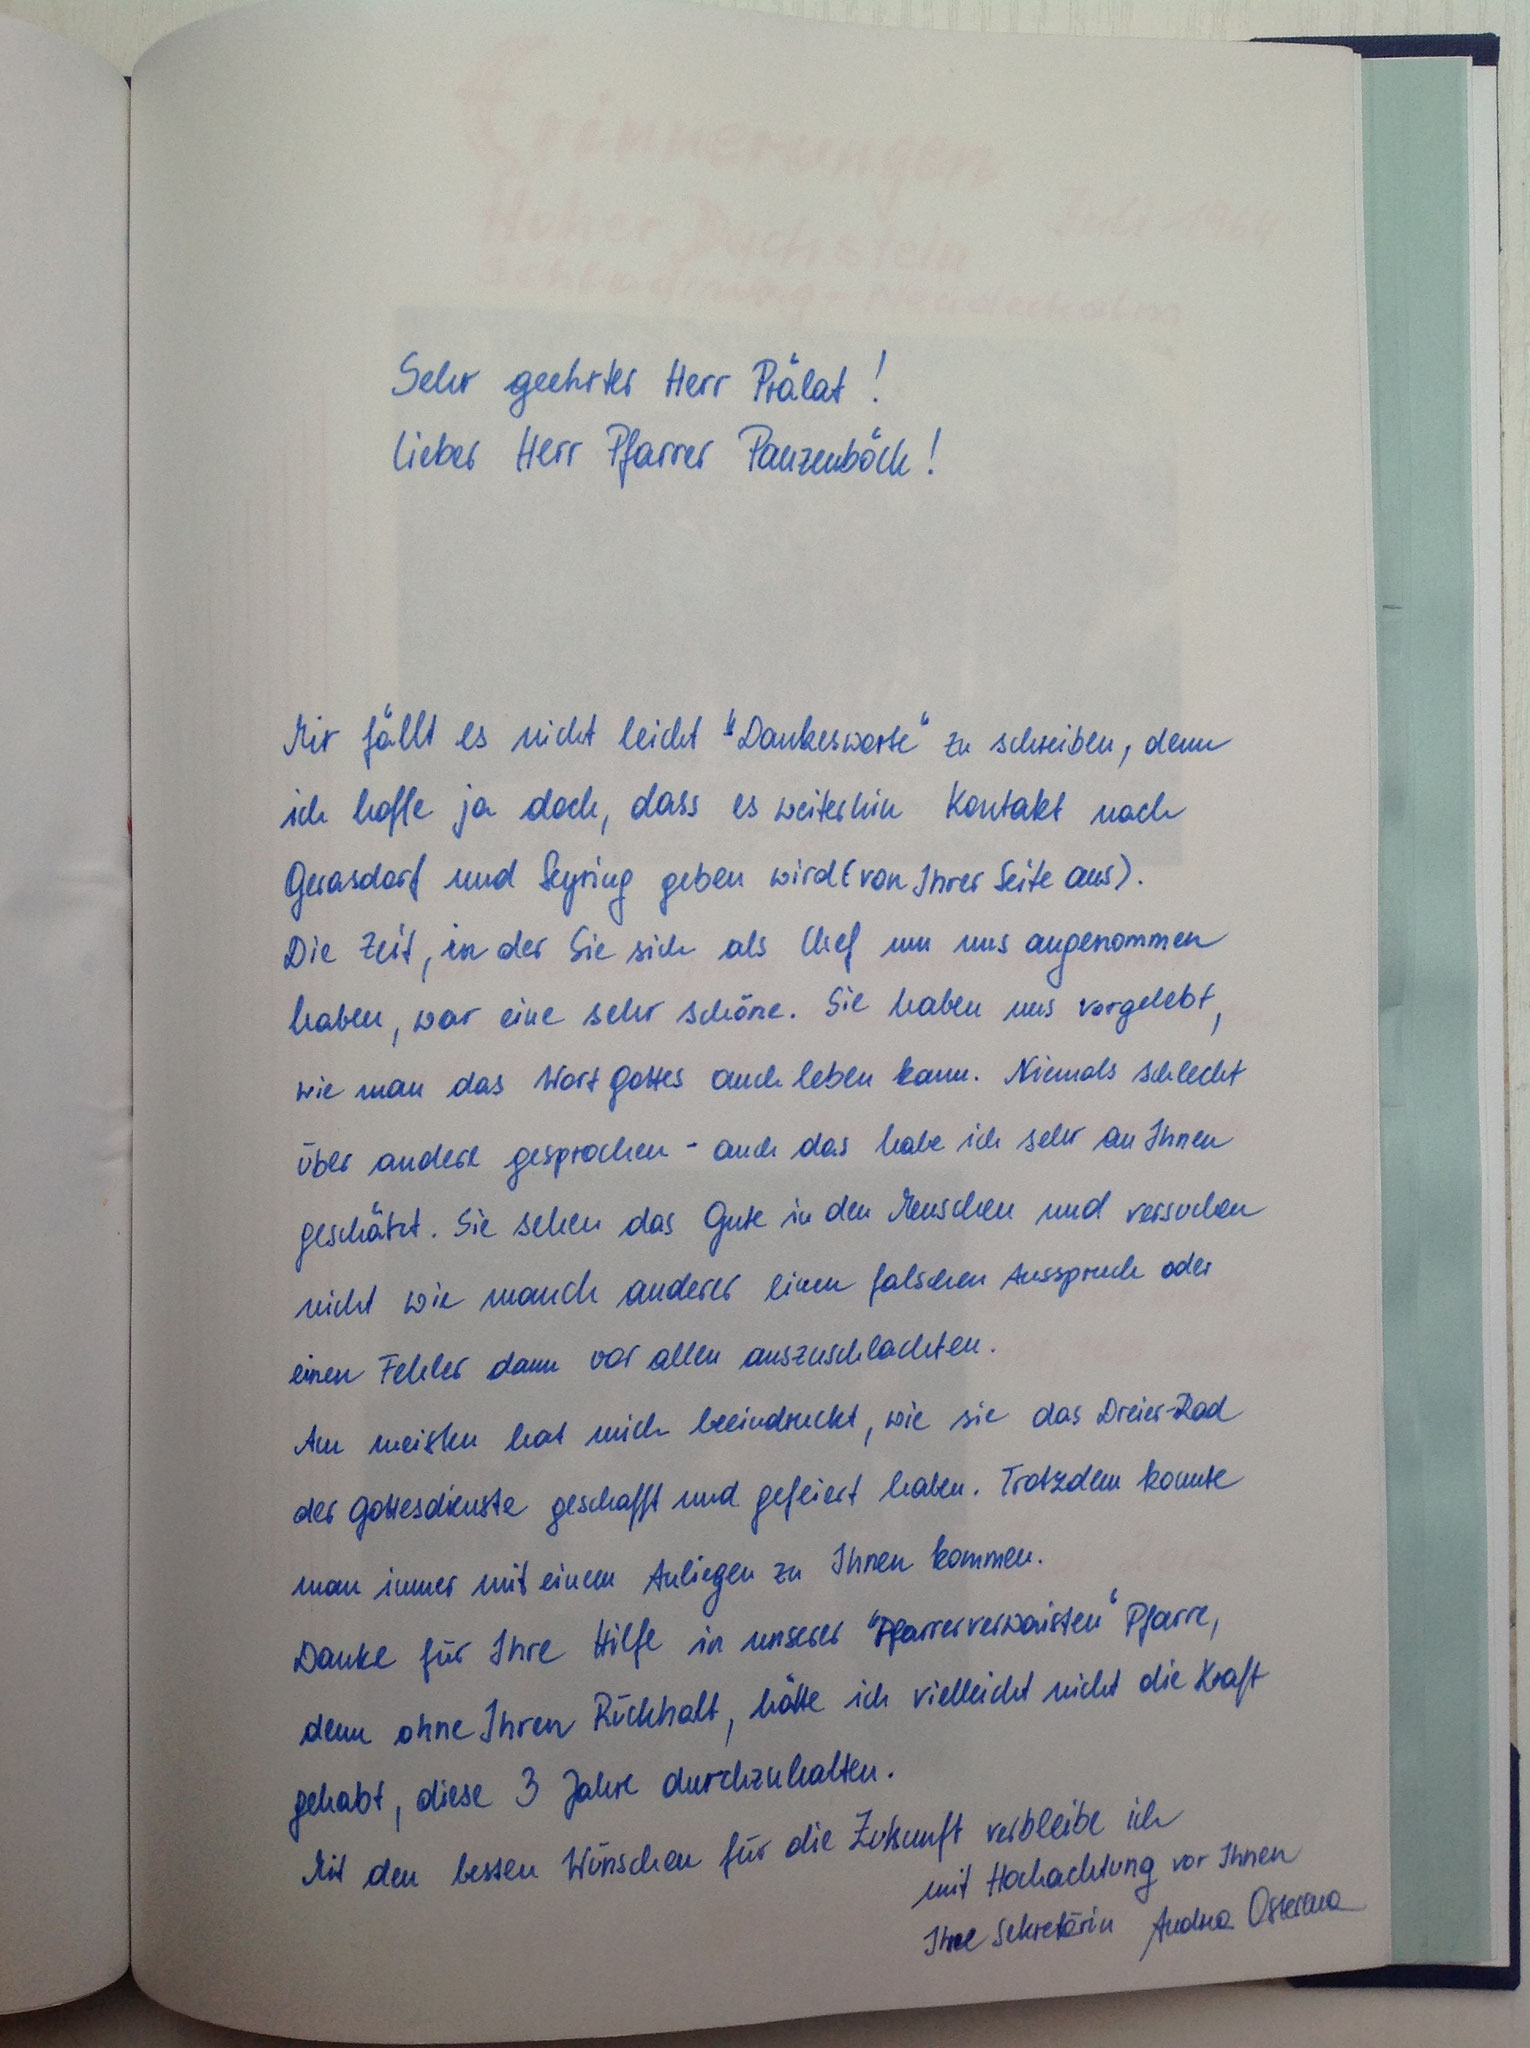 Erinnerungen
Hoher Dachstein Juli 1964
Schladming -
Sehr geehrter Herr Prälat!
Lieber Herr Pfarrer Panzenböck!
Mir fällt es nicht leicht "Dankesworte" zu schreiben, denn
ich hoffe ja doch, dass es weiterhin Kontakt nach
Gerasdorf und Seyring geben wird (von Ihrer Seite aus).
Die Zeit, in der Sie sich als Chef um uns angenommen
haben, war eine sehr schöne. Sie haben uns vorgelebt,
wie man das Wort Gottes auch leben kann. Niemals schlecht
über andere gesprochen - auch das habe ich sehr an Ihnen
geschätzt. Sie sehen das Gute in den Menschen und versuchen
nicht wie manch anderer einen falschen Ausspruch oder
einen Fehler dann vor allen auszuschlachten.
Am meisten hat mich beeindruckt, wie sie das Dreier-Rad
der Gottesdienste geschafft und gefeiert haben. Trotzdem konnte
man immer mit einem Anliegen zu Ihnen kommen.
Danke für Ihre Hilfe in unserer "Pfarrerverwaisten" Pfarre,
denn ohne Ihren Rückhalt, hätte ich vielleicht nicht die Kraft
gehabt, diese 3 Jahre durchzuhalten.
Mit den besten Wünschen für die Zukunft verbleibe ich
mit Hochachtung vor Ihnen
Ihre Sekretärin Andrea